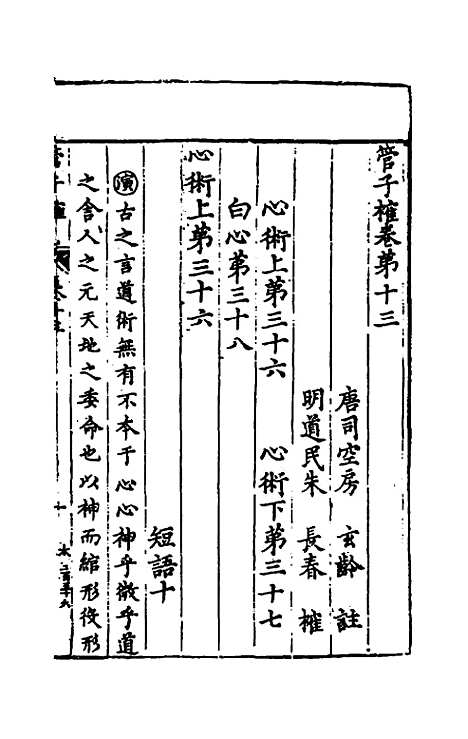 管子榷卷第十三
唐司空房　玄齡　註
明道民朱　長春　榷
心術上第三十六　心術下第三十七
白心第三十八
心術上第三十六
短語十
演 古之言道術無有不本于心心神乎微乎道
之舍人之元天地之委命也以神而綰形役形
管子榷　卷十三　十